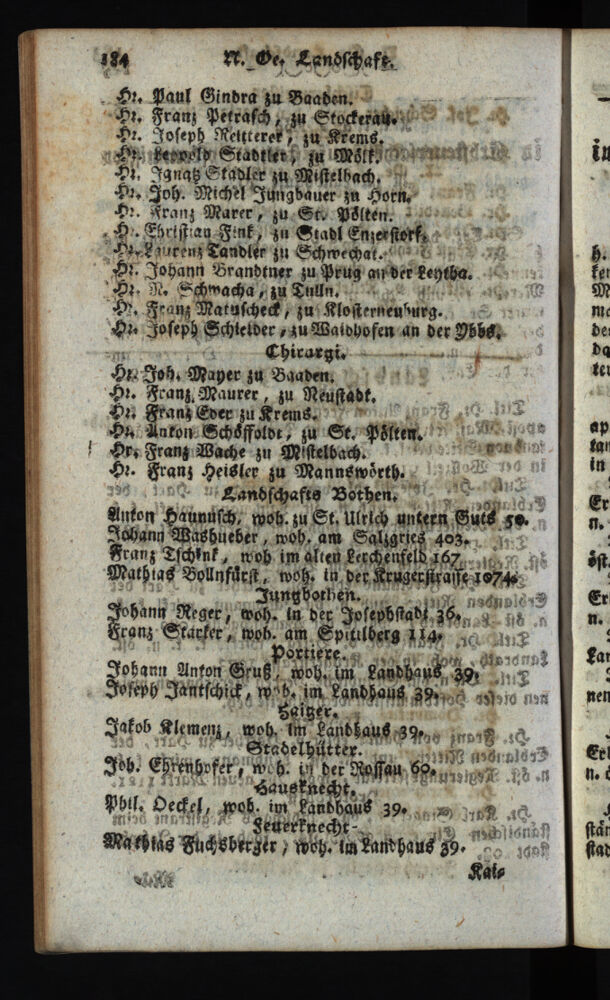 184 N. Oe. Landschaft.
Hr. Paul Gindra zu Baaden.
Hr. Franz Petrasch, zu Stockerau.
Hr. Joseph Reitterer, zu Krems.
Hr. Leopold Stadtler, zu Mölk.
Hr. Ignatz Stadler zu Mistelbach.
Hr. Joh. Michel Jungbauer zu Horn.
Hr. Franz Marer, zu St. Pölten.
H. Christian Fink, zu Stadl Enzerstorf.
Hr. Laurenz Tandler zu Schwechat.
Hr. Johann Brandtner zu Prug an der Leytha.
Hr. N. Schwacha, zu Tulln.
Hr. Franz Matuscheck, zu Klosterneuburg.
Hr. Joseph Schleider, zu Waidhofen an der Ybbs.
Chirurgi.
Hr. Joh. Mayer zu Baaden.
Hr. Franz Maurer, zu Neustadt.
Hr. Franz Eder zu Krems.
Hr. Anton Schöffoldt, zu St. Pölten.
Hr. Franz Wache zu Mistelbach.
Hr. Franz Heisler zu Mannswörth.
Landschafts Bothen.
Anton Haunusch, woh. zu St. Ulrich untern Guts 50.
Johann Washueber, woh. am Salzgries 403.
Franz Tschink, woh im alten Lerchenfeld 167.
Mathias Vollnfürst, woh. in der Krugerstrasse 1074.
Jungbothen.
Johann Reger, woh. in der Josephstadt 36.
Franz Starker, woh. am Spittlberg 114.
Portiere.
Johann Anton Gruß, woh. im Landhaus 39.
Joseph Jantschick, woh. im Landhaus 39.
Haitzer.
Jakob Klemenz, woh. im Landhaus 39.
Stadelhütter.
Joh. Ehrenhofer, woh. in der Rossau 60.
Hausknecht.
Phil. Oeckel, woh. im Landhaus 39.
Feuerknecht-
Mathias Fuchsberger, woh. im Landhaus 39.
Kai-